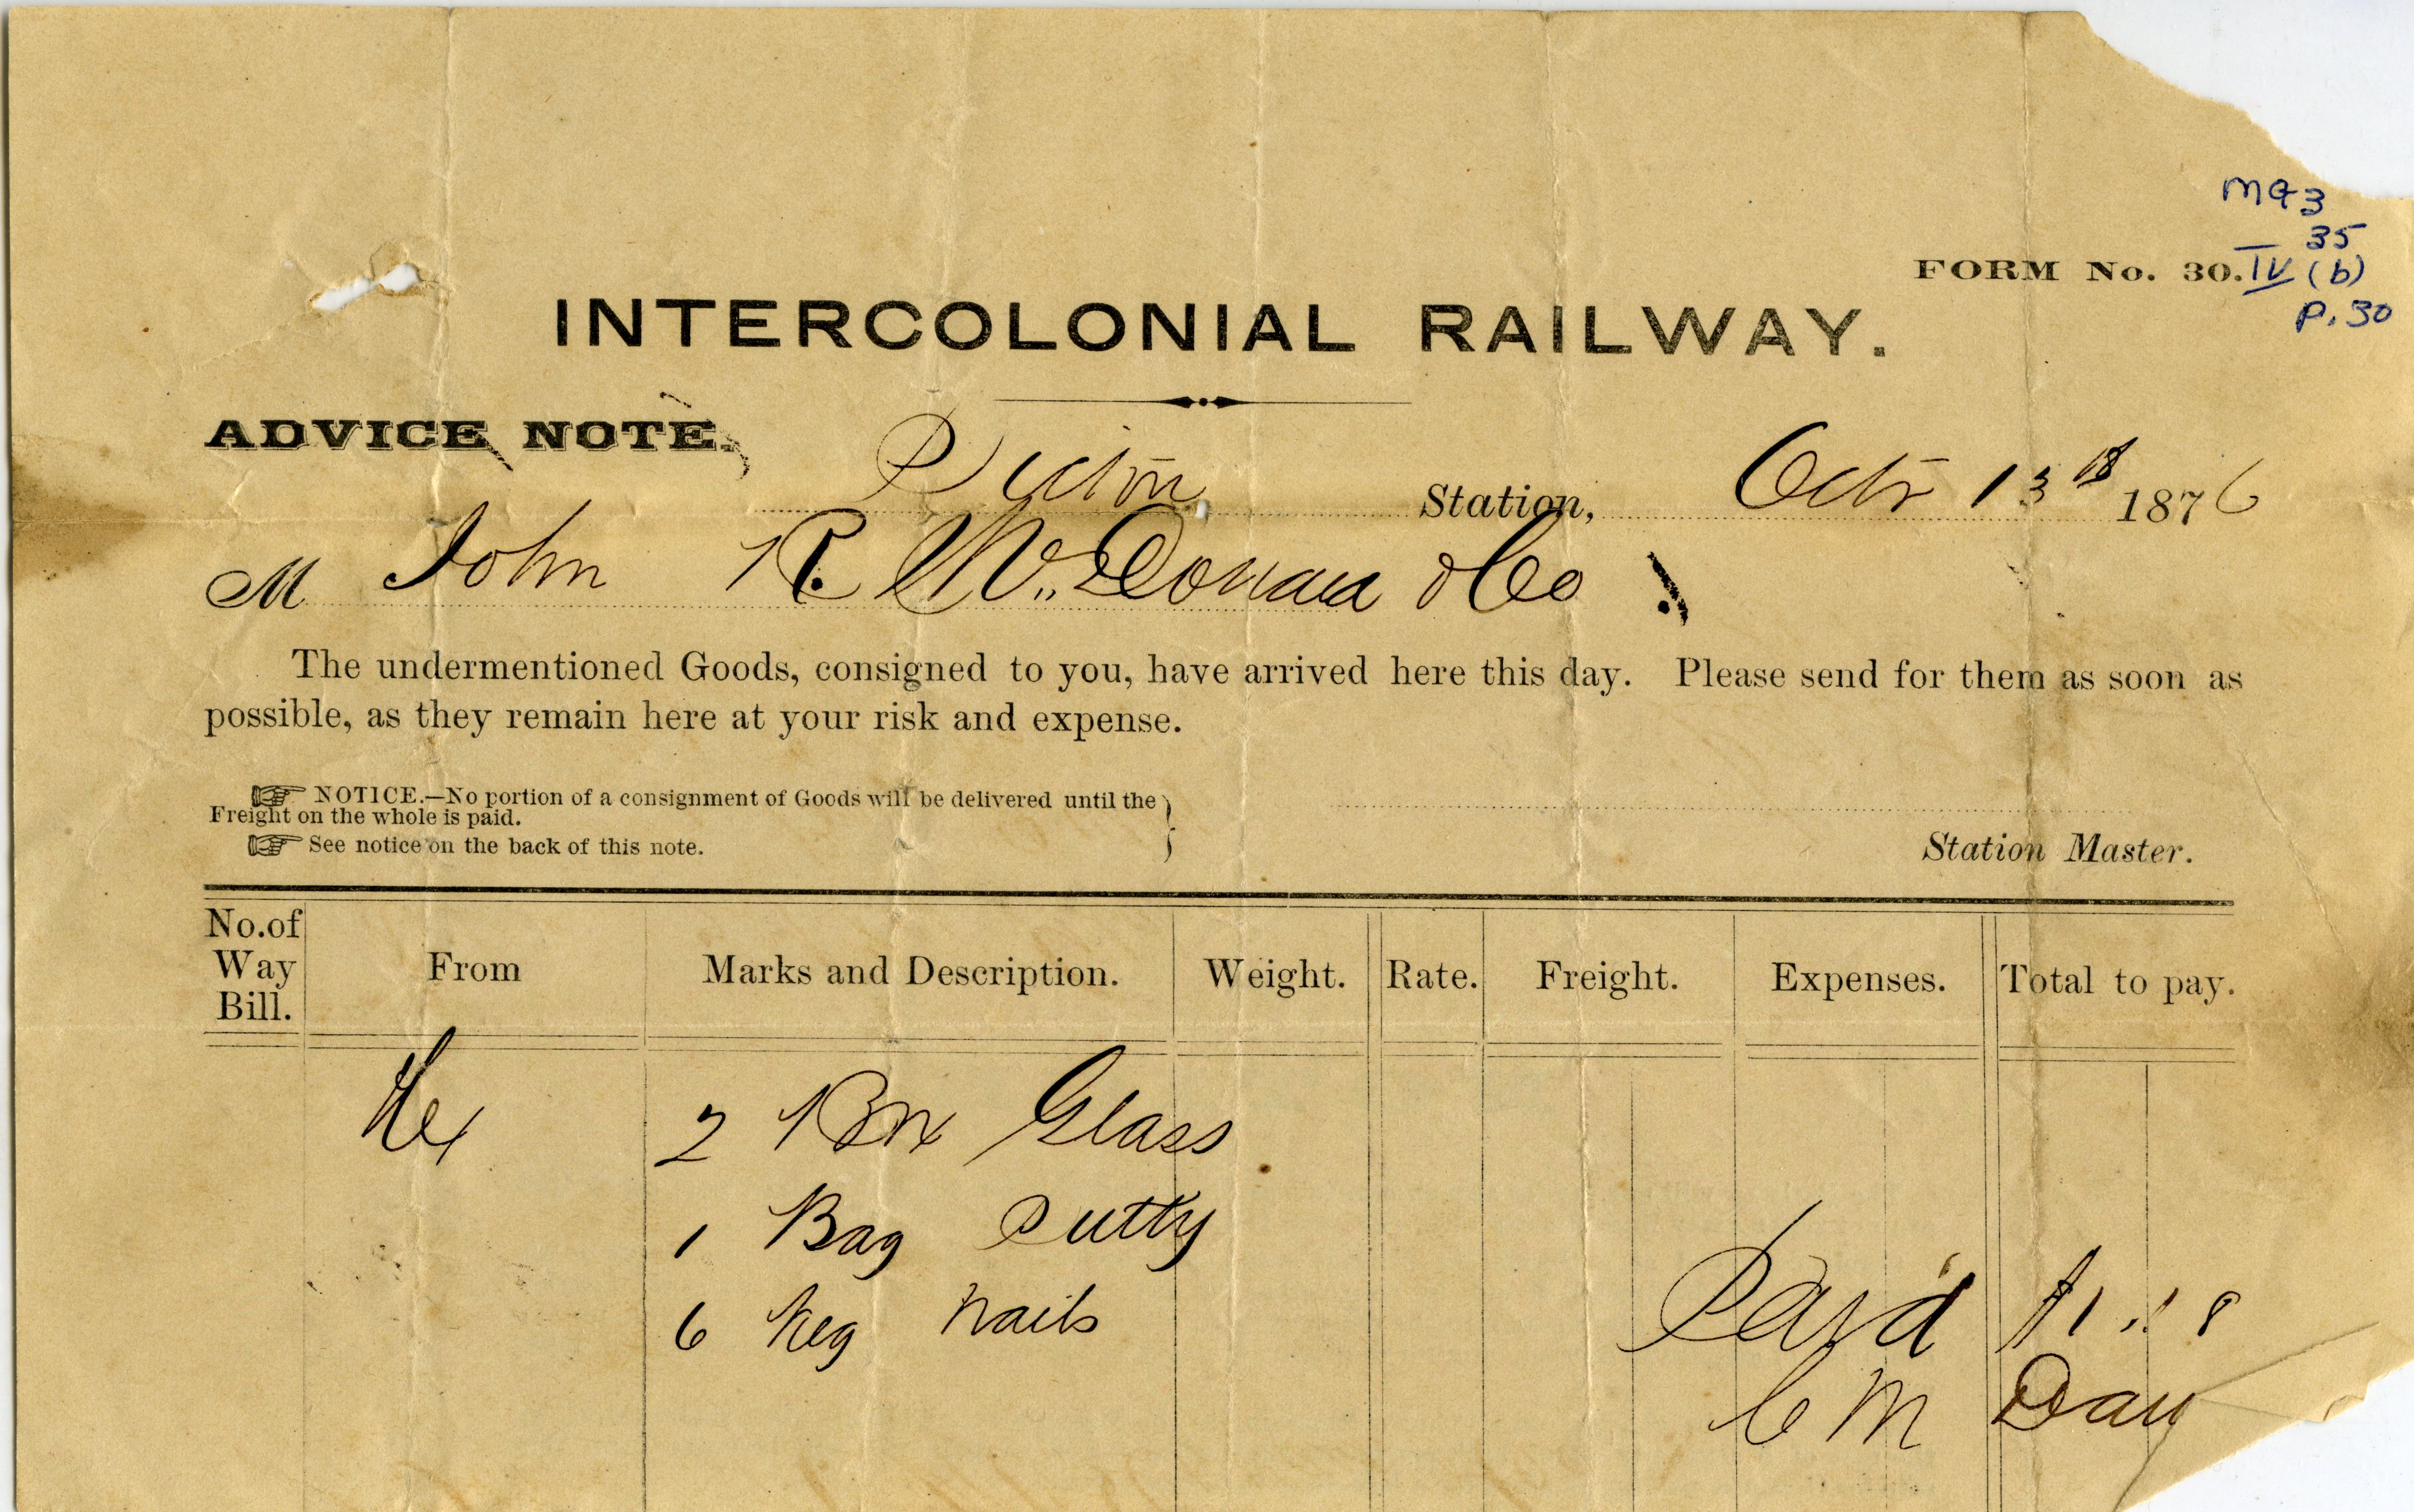 MG3
35
FORM No. 30. IV (b)
P. 30
INTERCOLONIAL RAILWAY.
ADVICE NOTE.
Pictou Station, Octr 13th 1876
M John R. McDonald & Co
The undermentioned Goods, consigned to you, have arrived here this day. Please send for them as soon as
possible, as they remain here at your risk and expense.
NOTICE.—No portion of a consignment of Goods will be delivered until the
Freight on the whole is paid.
See notice on the back of this note.
Station Master.
No. of Way Bill. From Marks and Description. Weight. Rate. Freight. Expenses. Total to pay.
Hx 2 Box Glass
1 Bag Putty
6 Keg Nails
Paid
C M Day